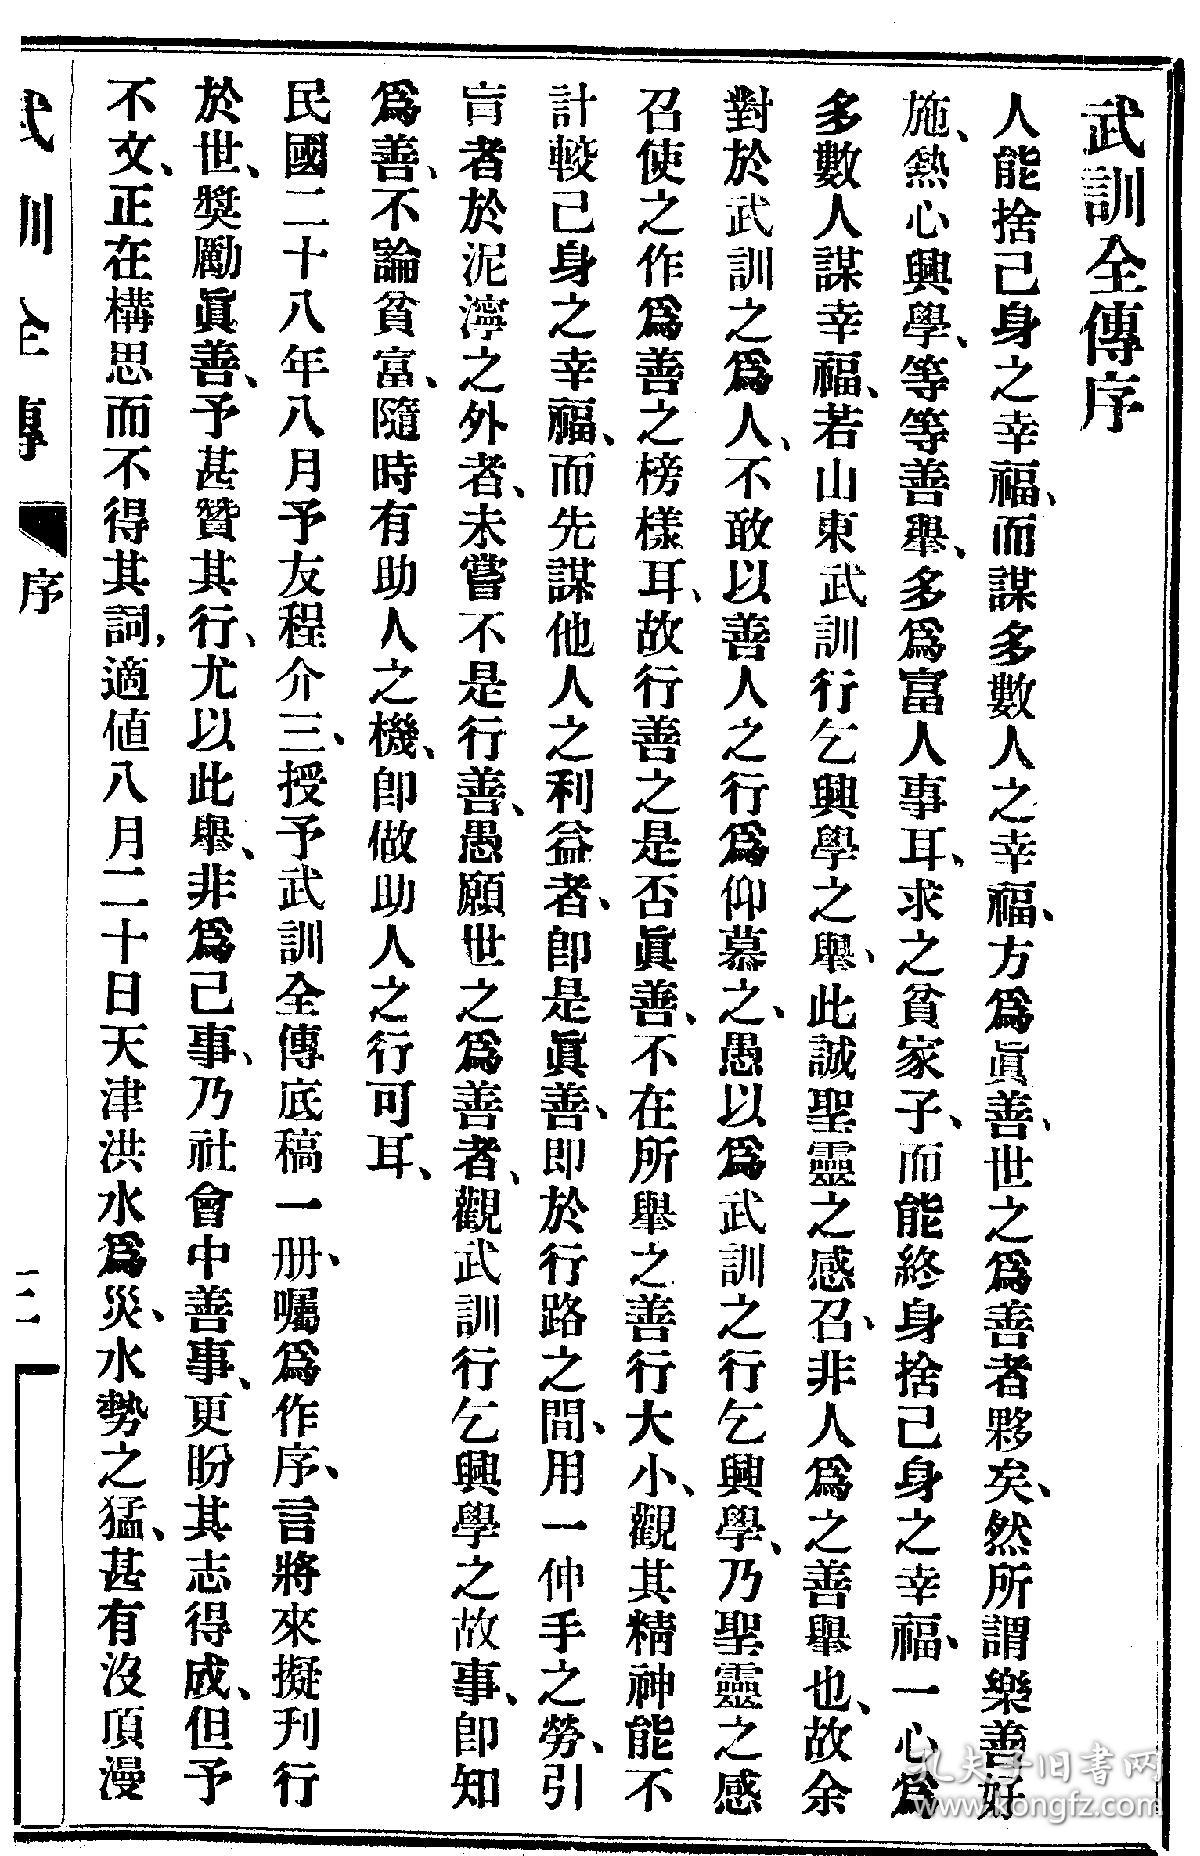 武訓全傳序
人能捨己身之幸福、而謀多數人之幸福、方爲眞善、世之爲善者夥矣、然所謂樂善好
施、熱心興學、等等善舉、多爲富人事耳、求之貧家子、而能終身捨己身之幸福、一心爲
多數人謀幸福、若山東武訓行乞興學之舉、此誠聖靈之感召、非人爲之善舉也、故余
對於武訓之爲人、不敢以善人之行爲仰慕之、愚以爲武訓之行乞興學、乃聖靈之感
召使之作爲善之榜樣耳、故行善之是否眞善、不在所舉之善行大小、觀其精神能不
計較己身之幸福、而先謀他人之利益者、卽是眞善、卽於行路之間、用一伸手之勞、引
盲者於泥濘之外者、未嘗不是行善、愚願世之爲善者、觀武訓行乞興學之故事、卽知
爲善、不論貧富、隨時有助人之機、卽做助人之行可耳、
民國二十八年八月予友程介三、授予武訓全傳底稿一册、囑爲作序、言將來擬刋行
於世、獎勵眞善、予甚贊其行、尤以此舉、非爲己事、乃社會中善事、更盼其志得成、但予
不文、正在構思而不得其詞、適値八月二十日天津洪水爲災、水勢之猛、甚有沒頂漫
武訓全傳 序 二
孔夫子旧书网
www.kongfz.com